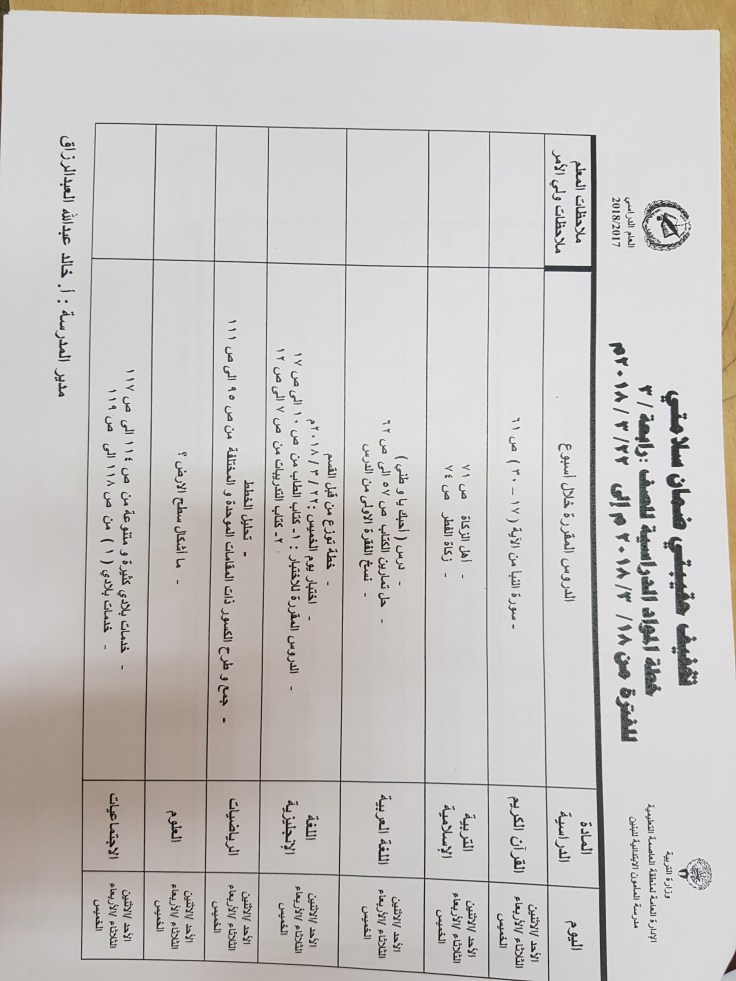 وزارة التربية
الإدارة العامة لمنطقة العاصمة التعليمية
مدرسة المأمون الابتدائية للبنين
تخفيف حقيبتي ضمان سلامتي
خطة المواد الدراسية للصف : رابعة / ٣
للفترة من ١٨ /٢٠١٨/٣ م إلى ٢٢/ ٣ / ٢٠١٨م
العام الدراسي
2018/2017
اليوم
المادة الدراسية
الدروس المقررة خلال أسبوع
ملاحظات المعلم
ملاحظات ولي الأمر
الأحد /الاثنين
الثلاثاء /الأربعاء
الخميس
القرآن الكريم
- سورة النبأ من الآية ( ١٧ – ٣٠ ) ص ٦١
الأحد /الاثنين
الثلاثاء /الأربعاء
الخميس
التربية
الإسلامية
- أهل الزكاة ص ٧١
- زكاة الفطر ص ٧٤
الأحد /الاثنين
الثلاثاء /الأربعاء
الخميس
اللغة العربية
- درس ( أحبك يا وطني )
- حل تمارين الكتاب ص ٥٧ الى ص ٦٢
- نسخ الفقرة الاولى من الدرس
الأحد /الاثنين
الثلاثاء /الأربعاء
الخميس
اللغة
الإنجليزية
- خطة توزع من قبل القسم
- اختبار يوم الخميس : ٢٢ / ٣ / ٢٠١٨م
- الدروس المقررة للاختبار : ١- كتاب الطالب من ص ١٠ الى ص ١٧
٢- كتاب التدريبات من ص ٧ الى ص ١٢
الأحد /الاثنين
الثلاثاء /الأربعاء
الخميس
الرياضيات
- تحليل الخطط
- جمع و طرح الكسور ذات المقامات الموحدة و المختلفة من ص ٩٥ الى ص ١١١
الأحد /الاثنين
الثلاثاء /الأربعاء
الخميس
العلوم
- ما أشكال سطح الارض ؟
الأحد /الاثنين
الثلاثاء /الأربعاء
الخميس
الاجتماعيات
- خدمات بلادي كثيرة و متنوعة من ص ١١٤ الى ص ١١٧
- خدمات بلادي ( ١ ) من ص ١١٨ الى ص ١١٩
مدير المدرسة : أ. خالد عبدالله العبدالرزاق